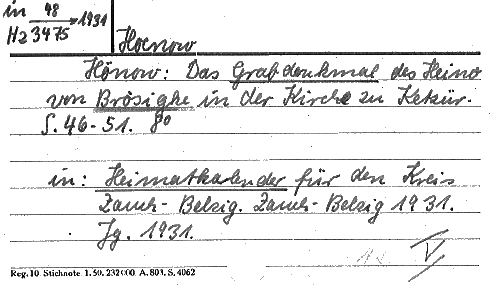 in 48
Hz 3475 1931
Hoenow
Hönow: Das Grabdenkmal des Heino
von Brösigke in der Kirche zu Ketzür.
S. 46-51. 8°
in: Heimatkalender für den Kreis
Zauch-Belzig. Zauch-Belzig 1931.
Jg. 1931.
V
Reg. 10 Stichnote 1. 50. 232000. A. 803. S. 4062